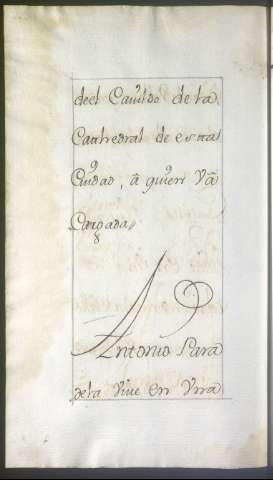 deel Cavildo de la
Cathedral de esta
Ciudad, â quien Vâ
Cargada,
Antonio Para
dela Vive en Vna